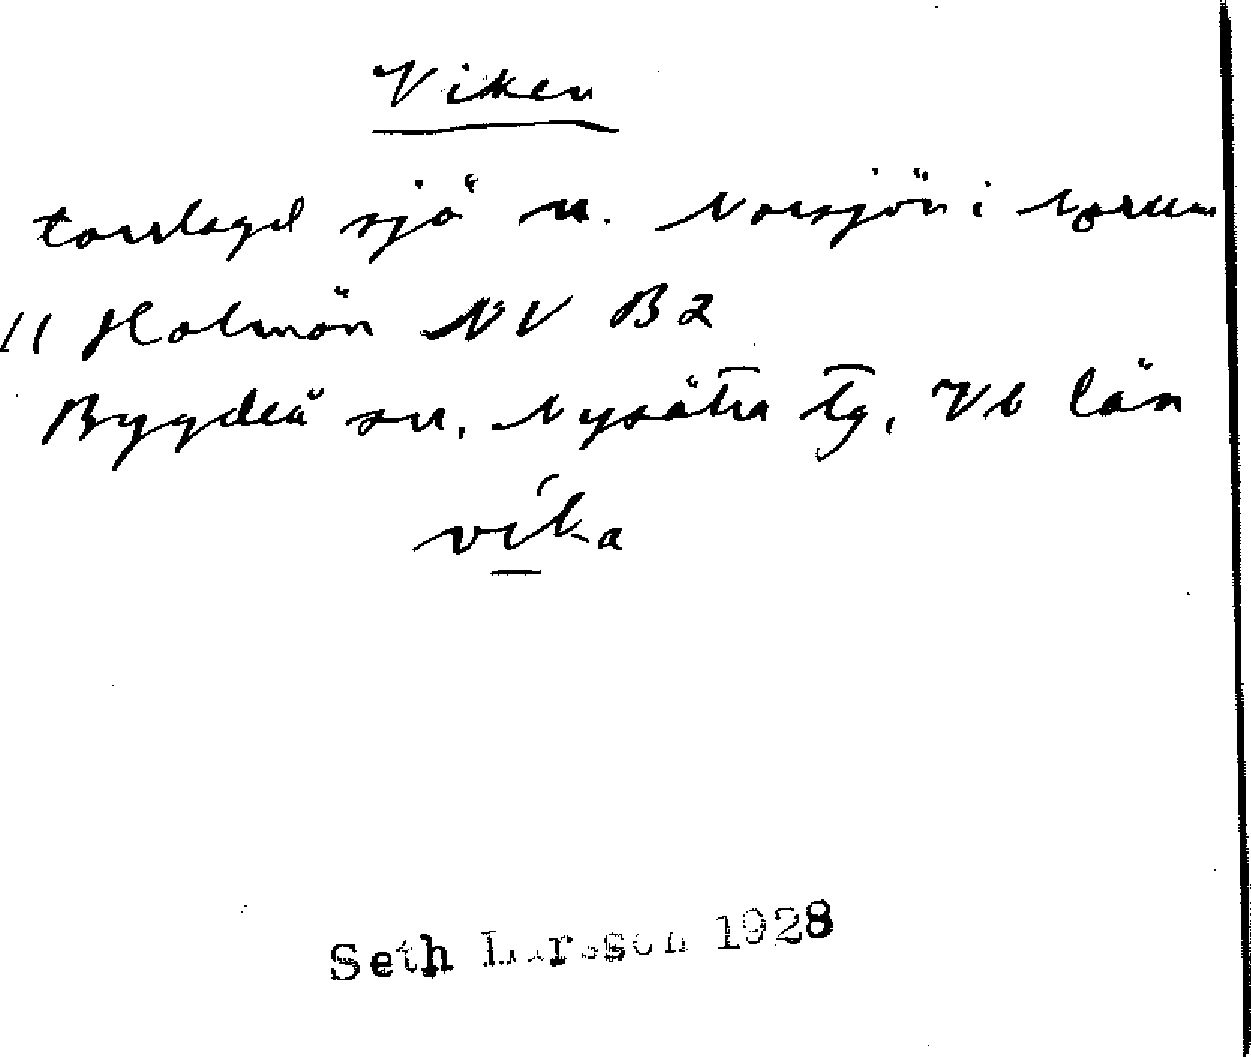 Viken
torrlagd sjö n. Norsjön i Norum
11 Holmön NV B2
Bygdeå sn, Nysätra tg, Vb län
víka
Seth Larsson 1928